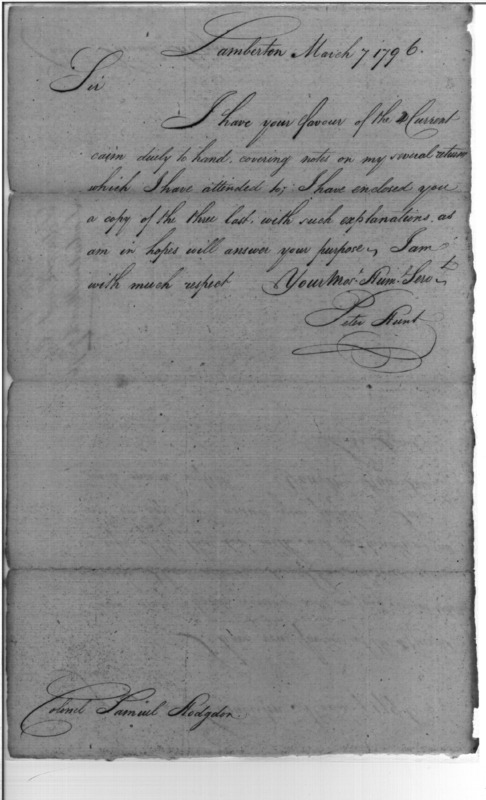 Lamberton March 7 1796.
Sir
I have your favour of the 2 Current
caim duely to hand. covering notes on my several returns
which I have attended to; I have enclosed you
a copy of the three last. with such explanations. as
am in hopes will answer your purpose, I am
with much respect Your Mos.t Hum.l Serv.t
Peter Hunt
Colonel Samuel Hodgdon